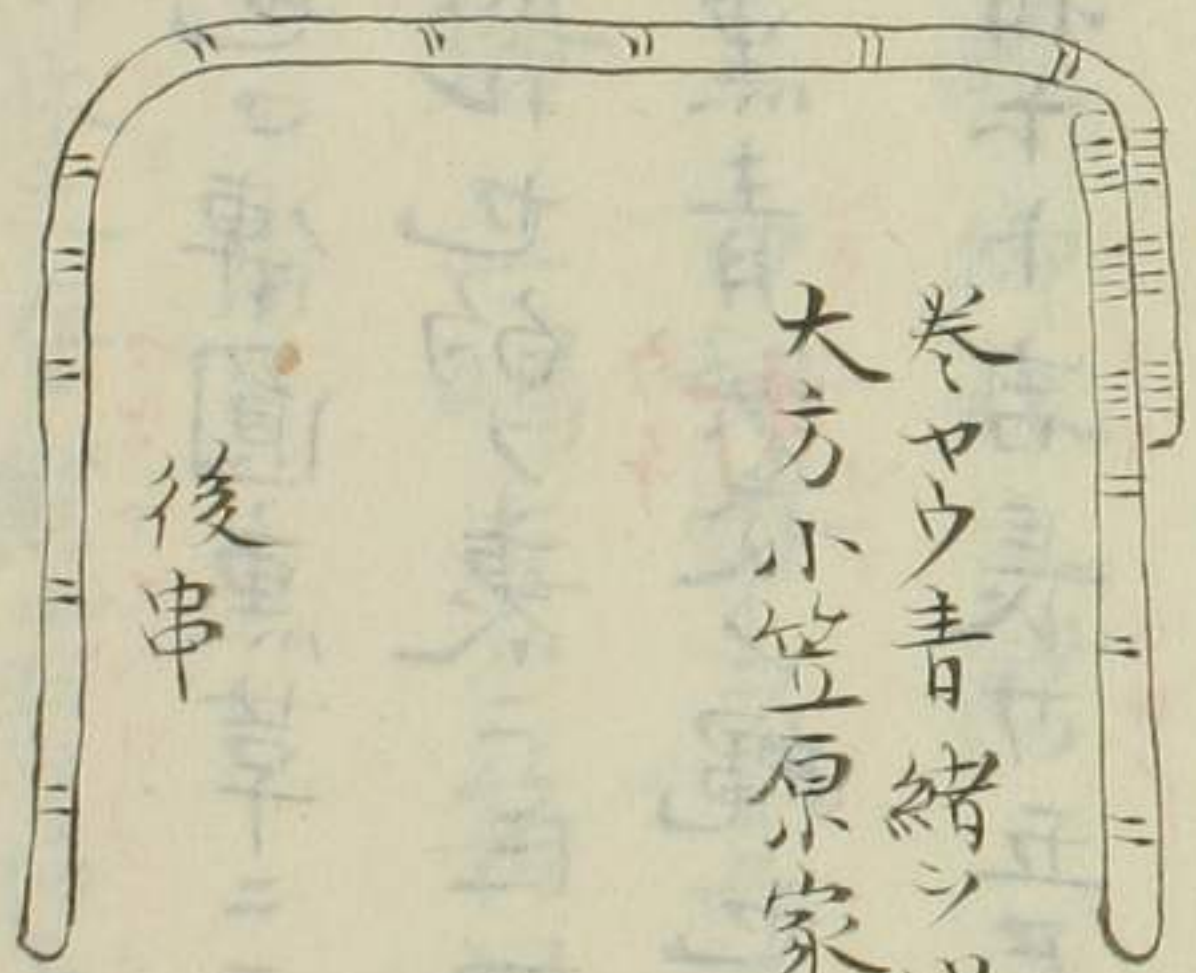 巻ヤウ青緒ン
大方小笠原家
後串